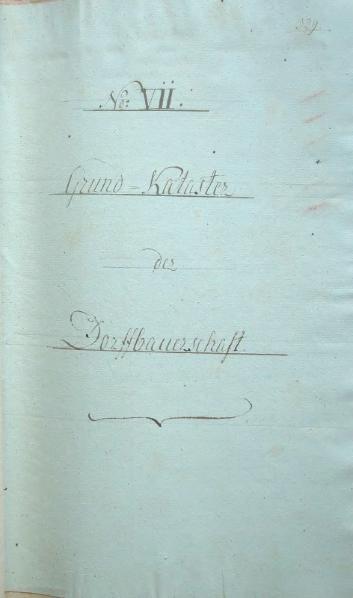 No: VII.
Grund=Kataster
der
Dorffbauerschaft.